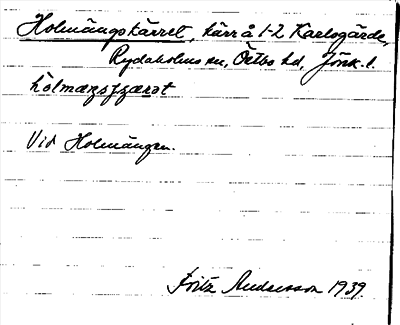 Holmängskärret, kärr å 1-2 Karlsgärde,
Rydaholms sn, Östbo hd, Jönk. l.
hòlmæŋsȷɟærət
Vid Holmängen.
Fritz Andersson 1939